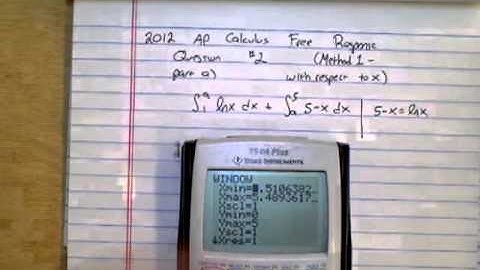 2012 AP Calculus Free Response
Question #2 (Method 1 -
part a) with respect to x)
∫₁ᵃ lnx dx + ∫ₐ⁵ 5-x dx | 5-x = lnx
TI-84 Plus
TEXAS INSTRUMENTS
WINDOW
Xmin=.5106382…
Xmax=5.4893617…
Xscl=1
Ymin=0
Ymax=5
Yscl=1
↓Xres=1